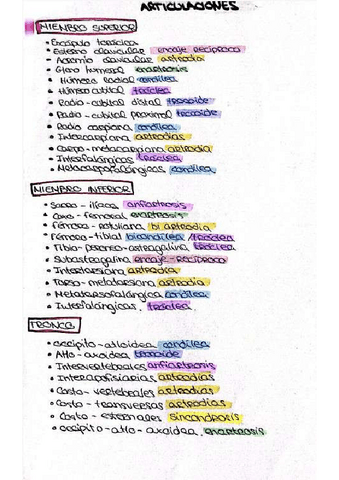 ARTICULACIONES
MIEMBRO SUPERIOR
• Escápulo torácica
• Esterno clavicular encaje recíproco
• Acromio clavicular artrodia
• Gleno humeral enartrosis
• Húmero radial condílea
• Húmero cubital tróclea
• Radio-cubital distal trocoide
• Radio-cubital proximal trocoide
• Radio carpiana condílea
• Intercarpiana artrodias
• Carpo-metacarpiana artrodia
• Interfalángicas tróclea
• Metacarpofalángicas condílea
MIEMBRO INFERIOR
• Sacro-ilíacas anfiartrosis
• Coxo-femoral enartrosis
• Fémoro-rotuliana bi artrodia
• Fémoro-tibial bicondílea / tróclea
• Tibio-peroneo-astragalina tróclea
• Subastragalina encaje-recíproco
• Intertarsiana artrodia
• Tarso-metatarsiana artrodia
• Metatarsofalángica condílea
• Interfalángicas. tróclea
TRONCO
• occipito-atloidea condílea
• Atlo-axoidea trocoide
• Intervertebrales anfiartrosis
• Interapofisiarias artrodias
• Costo-vertebrales artrodias
• Costo-transversas artrodias
• Costo-esternales sincondrosis
• occipito-atlo-axoidea enartrosis